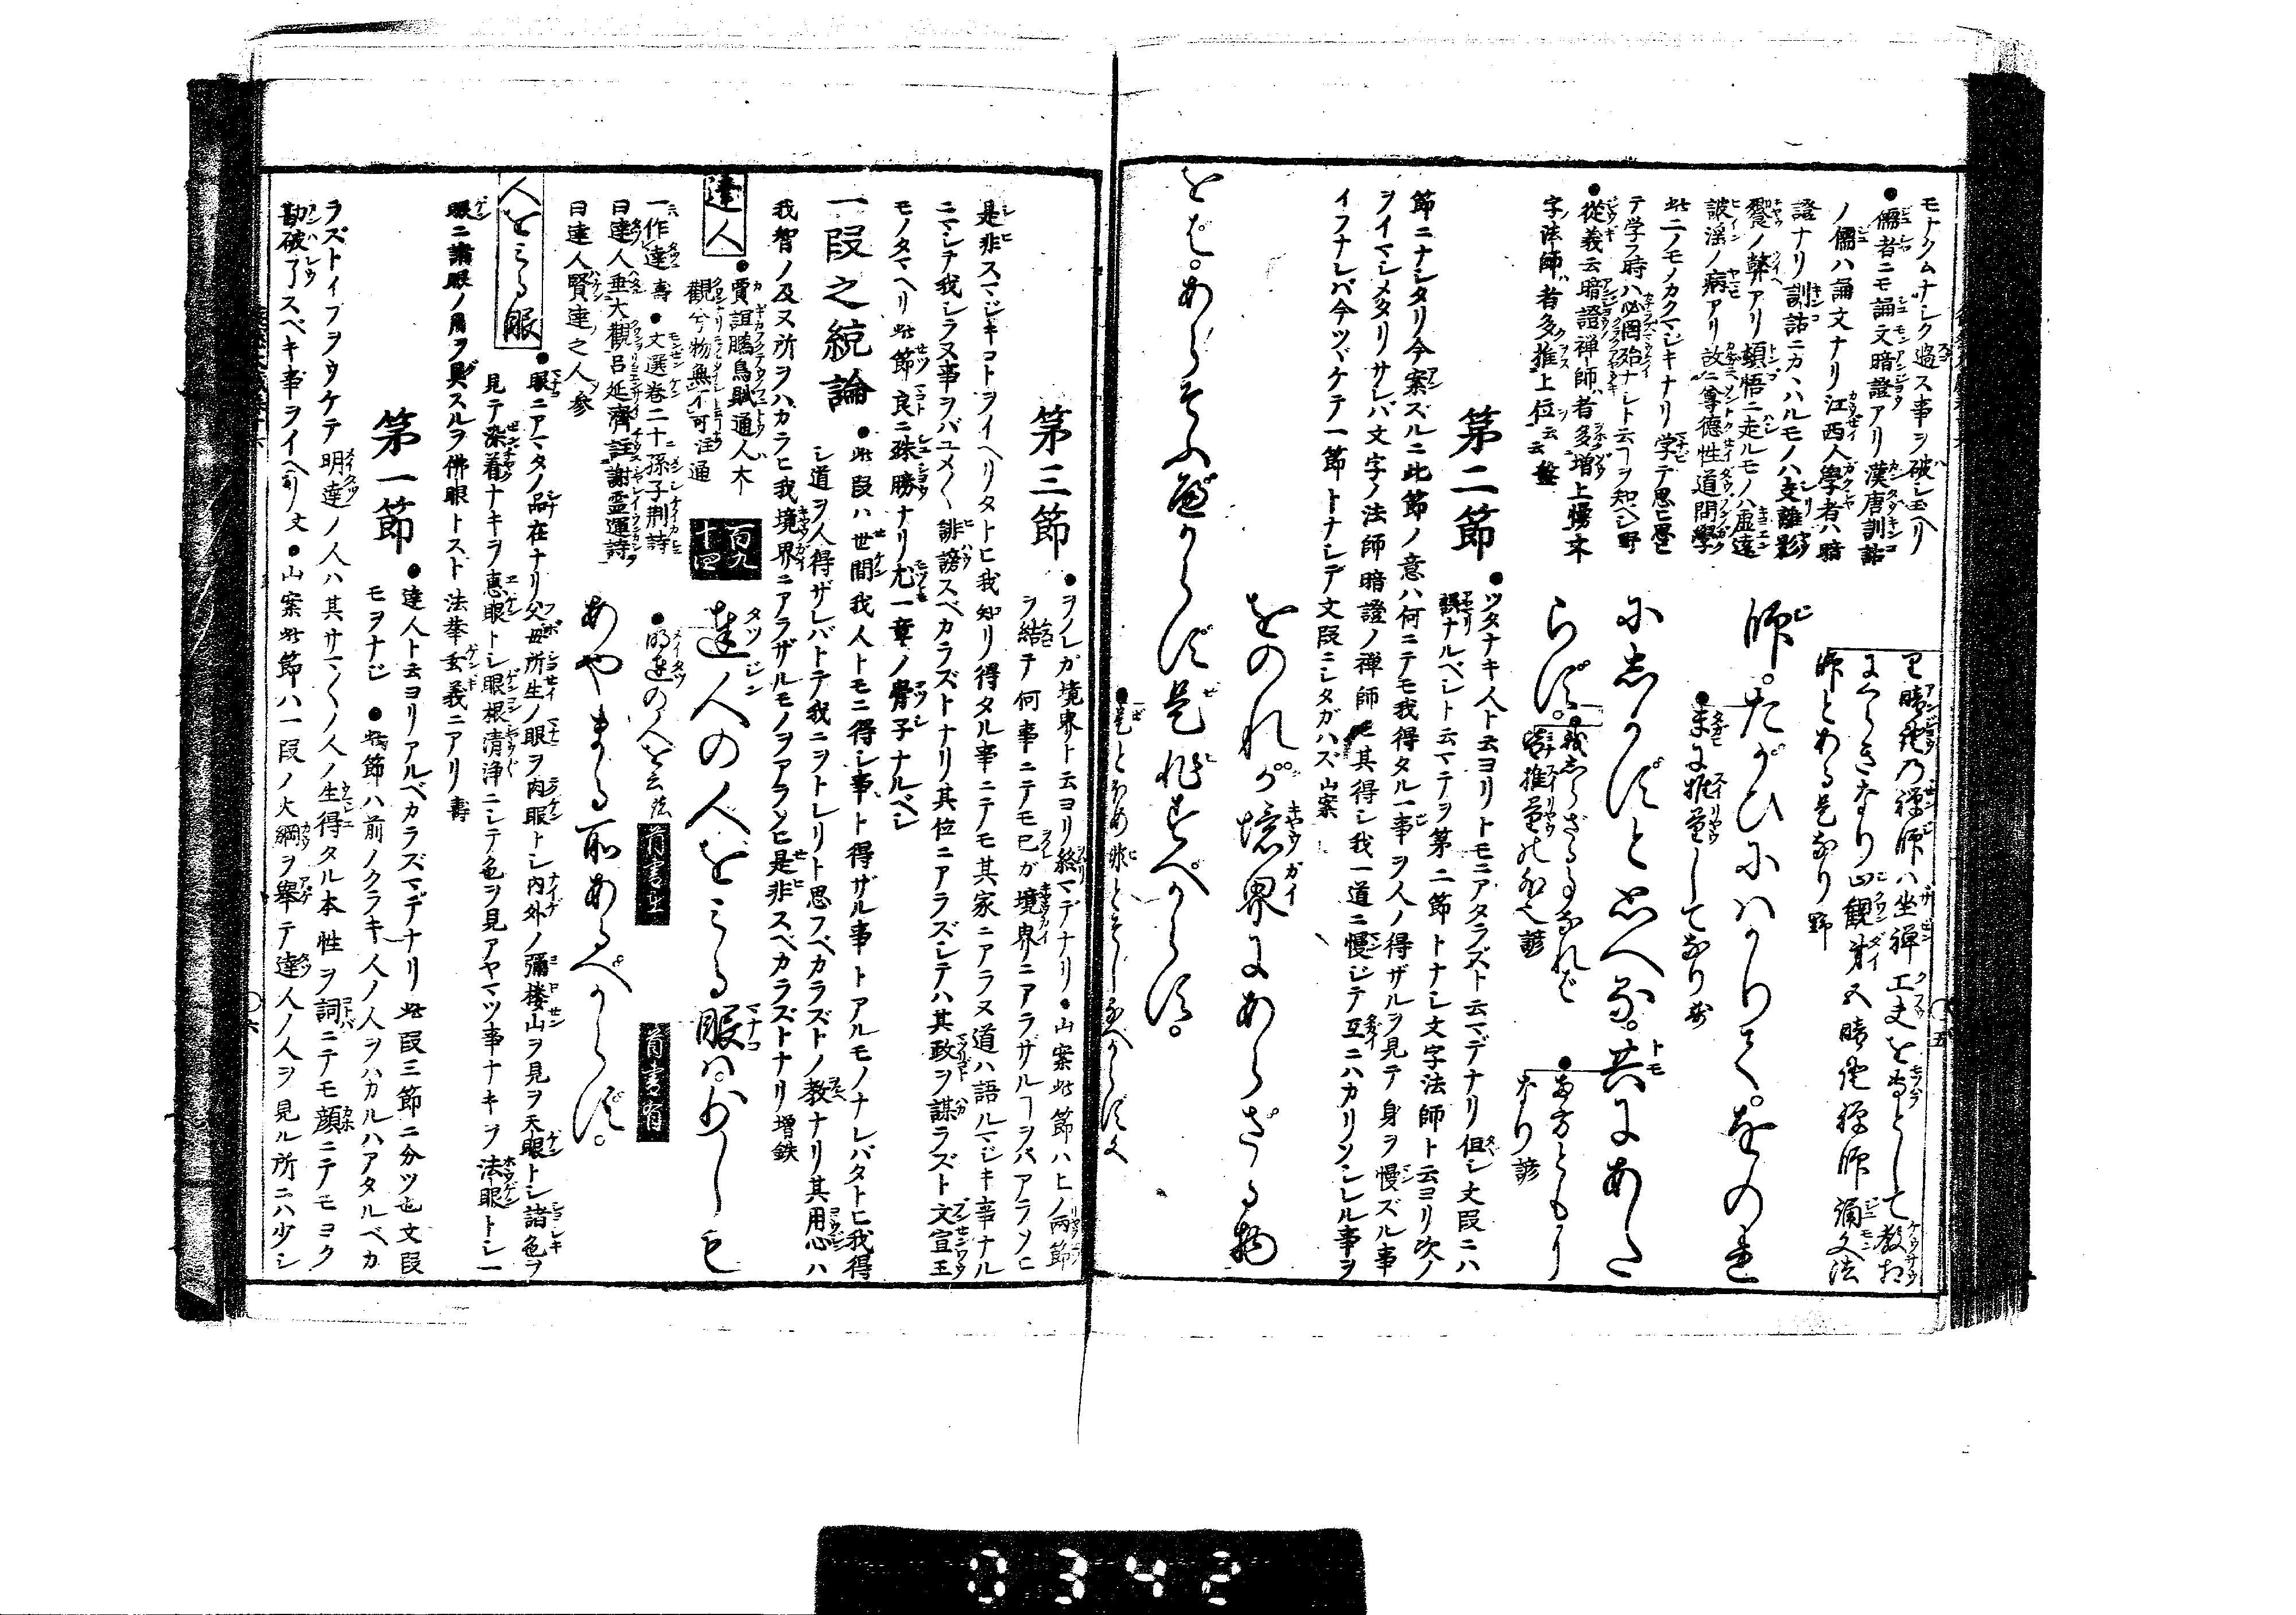 モナクムナシク過ス事ヲ破シ玉ヘリ
●儒者ニモ誦文暗證アリ漢唐訓詁
ノ儒ハ誦文ナリ江西人學者ハ暗
證ナリ訓詁ニカヽハルモノハ支離影
響ノ弊アリ頓悟ニ走ルモノハ虚遠
詖淫ノ病アリ故ニ尊德性道問學
此二ノモノカクマジキナリ学テ思ヒ思ヒ
テ学ス時ハ必罔殆ナシト云ヿヲ知ベシ野
●從義云暗證禅師者多増上慢文
字法師者多推上位云云盤
師。たがひにはかりて。をのれ
にしかずと思へる。共にあたら
らず。
●互に推量してなり
●我しらざる事なれど
●両方ともに
なり諺
第二節
●ツタナキ人ト云ヨリトモニアタラズト云マデナリ但シ文段ニハ
誤ナルベシト云マテヲ第二節トナシ文字法師ト云ヨリ次ノ
節ニナシタリ今案ズルニ此節ノ意ハ何ニテモ我得タル一事ヲ人ノ得ザルヲ見テ身ヲ慢ズル事
ヲイマシメタリサレバ文字ノ法師暗證ノ禅師モ其得シ我一道ニ慢ジテ互ニハカリソシレル事ヲ
イフナレバ今ツヾケテ一節トナシテ文段ニシタガハズ山案
をのれが境界にあらざる物
をば。あらそふべからず是非すべからず。
第三節
●ヲノレガ境界ト云ヨリ終マデナリ●山案此節ハ上ノ両節
ヲ結テ何事ニテモ己が境界ニアラザルヿヲバアラソヒ
是非スマジキコトヲイヘリタトヒ我知リ得タル事ニテモ其家ニアラヌ道ハ語ルマジキ事ナル
ニマシテ我シラヌ事ヲバユメ〱誹謗スベカラズトナリ其位ニアラズシテハ其政ヲ謀ラズト文宣王
モノタマヘリ此節良ニ殊勝ナリ尤一章ノ骨子ナルベシ
一段之統論
●此段ハ世間我人トモニ得シ事ト得ザル事トアルモノナレバタトヒ我得
シ道ヲ人得ザレバトテ我ニヲトレリト思フベカラズトノ教ナリ其用心ハ
我智ノ及ヌ所ヲハカラヒ我境界ニアラザルモノヲアラソヒ是非スベカラズトナリ増鉄
達人
●賈誼鵬鳥賦通人大
觀兮物無不可注通
一作達壽●文選卷二十孫子荆詩
曰達人垂大觀呂延濟註謝霊運詩
曰達人賢達之人参
百九
十四
達人の人をみる眼は。少しも
●明達の人を云法
あやまる所あるべからず。
人をみる眼
●眼ニアマタノ品在ナリ父母所生ノ眼ヲ肉眼トシ内外ノ彌楼山ヲ見ヲ天眼トシ諸色ヲ
見テ染着ナキヲ惠眼トシ眼根清浄ニシテ色ヲ見アヤマツ事ナキヲ法眼トシ一
眼ニ諸眼ノ用ヲ具スルヲ佛眼トスト法華玄義ニアリ壽
第一節
●達人ト云ヨリアルベカラズマデナリ此段三節ニ分ツ也文段
モヲナジ●此節ハ前ノクラキ人ノ人ヲハカルハアタルベカ
ラズトイフヲウケテ明達ノ人ハ其サマ〱ノ人ノ生得タル本性ヲ詞ニテモ顔ニテモヨク
勘破了スベキ事ヲイヘリ文●山案此節ハ一段ノ大綱ヲ擧テ達人ノ人ヲ見ル所ニハ少シ
0342